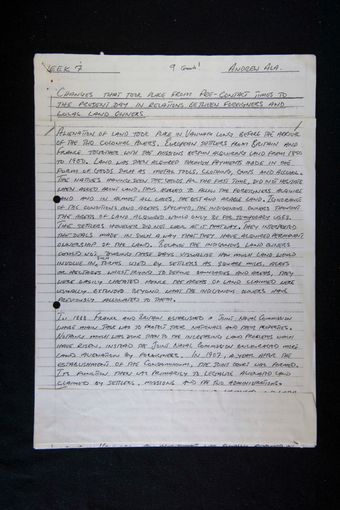 WEEK 7 9 Good! ANDREW ALA.
CHANGES THAT TOOK PLACE FROM PRE-CONTACT TIMES TO
THE PRESENT DAY IN RELATIONS BETWEEN FOREIGNERS AND
LOCAL LAND OWNERS
ALIENATION OF LAND TOOK PLACE IN VANUATU LONG BEFORE THE ARRIVAL
OF THE TWO COLONIAL POWERS. EUROPEAN SETTLERS FROM BRITAIN AND
FRANCE TOGETHER WITH THE MISSIONS BEGAN ACQUIRING LAND FROM
TO LAND WAS THEN ACQUIRED THROUGH PAYMENTS MADE IN THE
FORM OF GOODS SUCH AS METAL TOOLS, CLOTHING, GUNS AND ALCOHOL.
THE NATIVES HAVING SEEN THE GOODS FOR THE FIRST TIME, DID NOT HESITATE
WHEN ASKED ABOUT LAND, THUS AGREED TO ALLOW THE FOREIGNERS ACQUIRE
LAND AND IN ALMOST ALL CASES, THE BEST AND ARABLE LAND. IGNORANCE
OF THE CONDITIONS AND AREAS SPECIFIED, THE INDIGENOUS OWNERS THOUGHT
THE AREAS OF LAND ACQUIRED WOULD ONLY BE FOR TEMPORARY USES.
THE SETTLERS HOWEVER DID NOT LOOK AT IT THAT WAY. THEY INTERPRETED
THE DEALS MADE IN SUCH A WAY THAT THEY HAVE ACQUIRED PERMANENT
OWNERSHIP OF THE LAND. BECAUSE THE INDIGENOUS LAND OWNERS
COULD NOT, DURING THOSE DAYS VISUALISE HOW MUCH LAND WOULD
INVOLVE IN TERMS USED BY SETTLERS AS SQUARE MILES, ACRES
OR HECTARES WHILST TRYING TO DEFINE BOUNDARIES AND AREAS, THEY
WERE EASILY CHEATED HENCE THE AREAS OF LAND CLAIMED WERE
USUALLY EXTENDED BEYOND WHAT THE INDIGENOUS OWNERS HAVE
PREVIOUSLY ALLOCATED TO THEM.
IN 1888 FRANCE AND BRITAIN ESTABLISHED A JOINT NAVAL COMMISSION
WHOSE MAIN TASK WAS TO PROTECT THEIR NATIONALS AND THEIR PROPERTIES.
NOTHING MUCH WAS DONE THEN TO THE INCREASING LAND PROBLEMS WHICH
HAVE RISEN, INSTEAD THE JOINT NAVAL COMMISSION ENCOURAGED MORE
LAND ALIENATION BY FOREIGNERS. IN 1907, A YEAR AFTER THE
ESTABLISHMENT OF THE CONDOMINIUM, THE JOINT COURT WAS FORMED.
ITS FUNCTION THEN WAS PRIMARILY TO LEGALISE ALIENATED LAND
CLAIMED BY SETTLERS, MISSIONS AND THE TWO ADMINISTRATIONS.